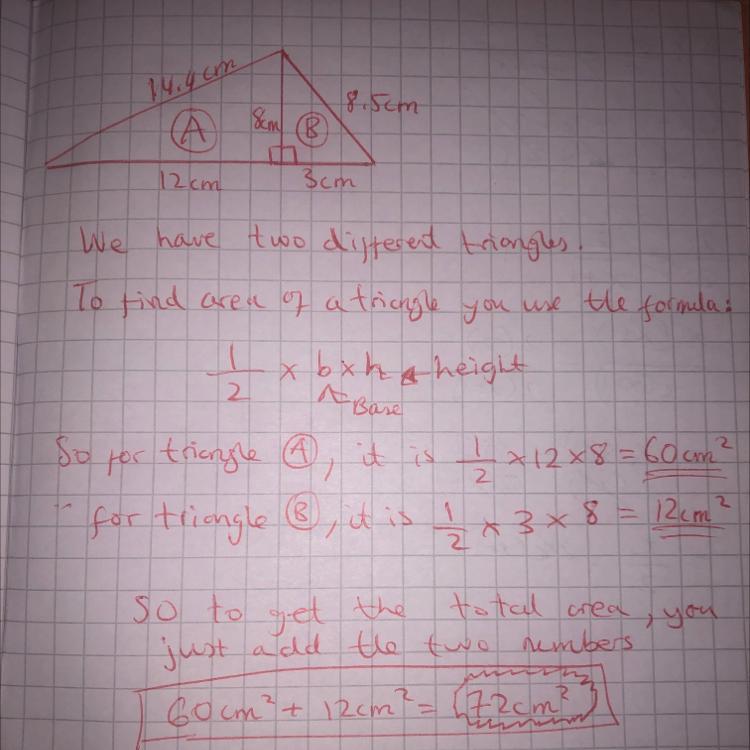 14.4cm
8.5cm
8cm
A
B
12cm
3cm
We have two different triangles.
To find area of a triangle you use the formula:
1/2 × b × h ← height
↖ Base
So for triangle Ⓐ, it is 1/2 × 12 × 8 = 60cm²
" for triangle Ⓑ, it is 1/2 × 3 × 8 = 12cm²
So to get the total area, you
just add the two numbers
60cm² + 12cm² = 72cm²